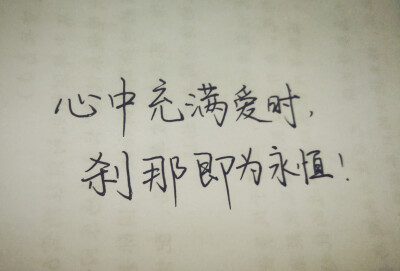 心中充满爱时,
刹那即为永恒!